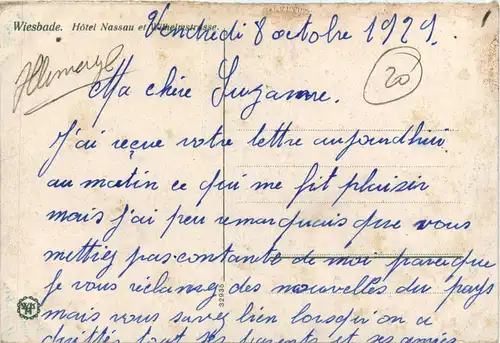 Wiesbade. Hôtel Nassau et Wilhelmstrasse.
Vendredi 8 octobre 1929.
20
Ma chère Suzanne.
J'ai reçue votre lettre aujourd'hui
au matin ce qui me fit plaisir
mais j'ai peu remarquais que vous
mettiez pas contante de moi parceque
je vous réclamez des nouvelles du pays
mais vous savez bien lorsqu'on a
quittés tout ses parents et ses amies
32935